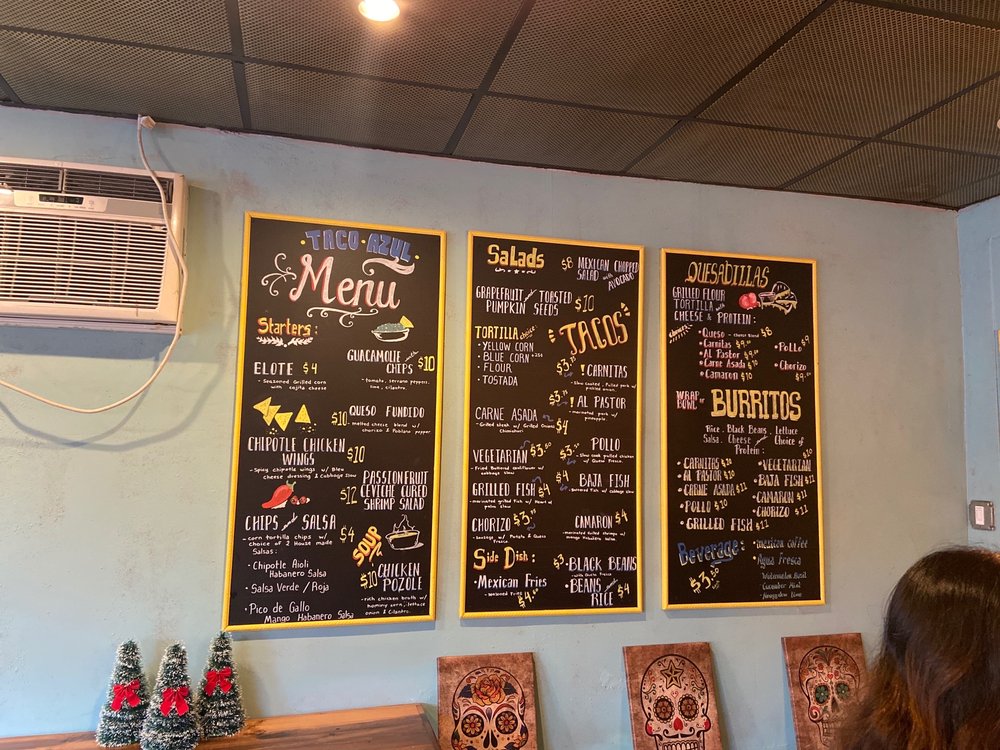 TACO • AZUL
Menu
Starters:
ELOTE $4
- Seasoned Grilled corn
with cojita cheese
GUACAMOLIE with
CHIPS $10
- tomato, serrano peppers,
lime, cilantro.
$10 QUESO FUNDIDO
melted cheese blend w/
chorizo & Poblano pepper
CHIPOTLE CHICKEN
WINGS $10
- Spicy chipotle wings w/ Blew
cheese dressing & Cabbage Slaw
$12 PASSIONFRUIT
CEVICHE CURED
SHRIMP SALAD
CHIPS and SALSA
$4
- corn tortilla chips w/
choice of 2 House made
Salsas:
• Chipotle Aioli
Habanero Salsa
• Salsa Verde / Roja
• Pico de Gallo
Mango Habanero Salsa
SOUP
$10 CHICKEN
POZOLE
- rich chicken broth w/
hominy corn, lettuce
onion & Cilantro.
Salads
$8 MEXICAN CHOPPED
SALAD with
AVOCADO
GRAPEFRUIT and TOASTED
PUMPKIN SEEDS $10
TORTILLA choice:
• YELLOW CORN
• BLUE CORN +25¢
• FLOUR
• TOSTADA
TACOS
CARNITAS
- Slow Cooked, Pulled pork w/
pickled onion.
AL PASTOR
- marinated pork w/
pineapple.
CARNE ASADA
$4
- Grilled Steak w/ Grilled Onions
VEGETARIAN $3.50
- Fried Battered cauliflower w/
cabbage slaw
$3.50 POLLO
- Slow cook pulled chicken
w/ Queso Fresco.
GRILLED FISH $4
- marinated grilled Fish w/ Heart of
palm Slaw
$4 BAJA FISH
- Battered Fish w/ cabbage slaw
CHORIZO $3.75
- Sausage w/ Potato & Queso
Fresco
CAMARON $4
- marinated Grilled Shrimp w/
mango Habanero Salsa
Side Dish:
• Mexican Fries
- seasoned fries $4.00
$3 BLACK BEANS
- with Queso Fresco
BEANS and
RICE $4
QUESADILLAS
GRILLED FLOUR
TORTILLA with
CHEESE & PROTEIN:
• Queso - cheese Blend $8
• Carnitas
• Al Pastor
• Carne Asada $10
• Camaron $10
• Pollo $9
• Chorizo
WRAP or
BOWL
BURRITOS
Rice, Black Beans, Lettuce
Salsa, Cheese and Choice of
Protein:
• CARNITAS $10
• AL PASTOR $10
• CARNE ASADA $11
• POLLO $10
• GRILLED FISH $11
• VEGETARIAN $10
• BAJA FISH $11
• CAMARON $11
• CHORIZO $11
Beverage:
$3.50
• mexican coffee
Agua Fresca
Watermelon Basil
Cucumber Mint